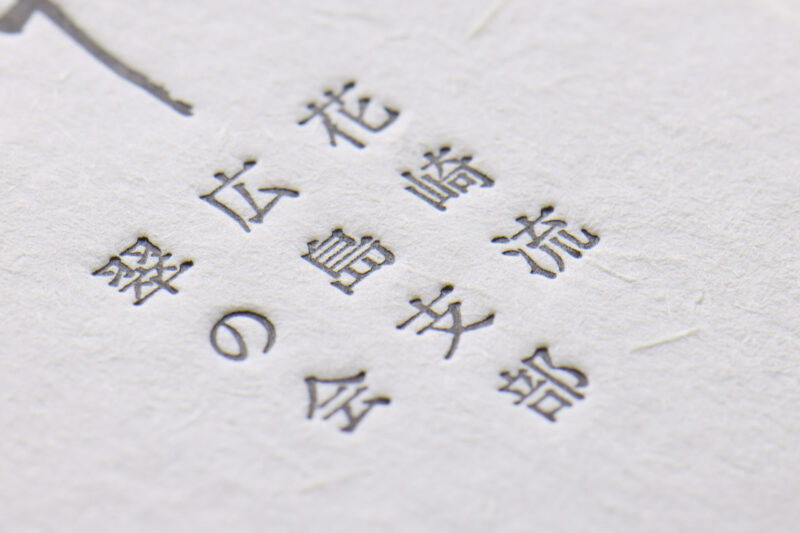 花崎流
広島支部
翠の会